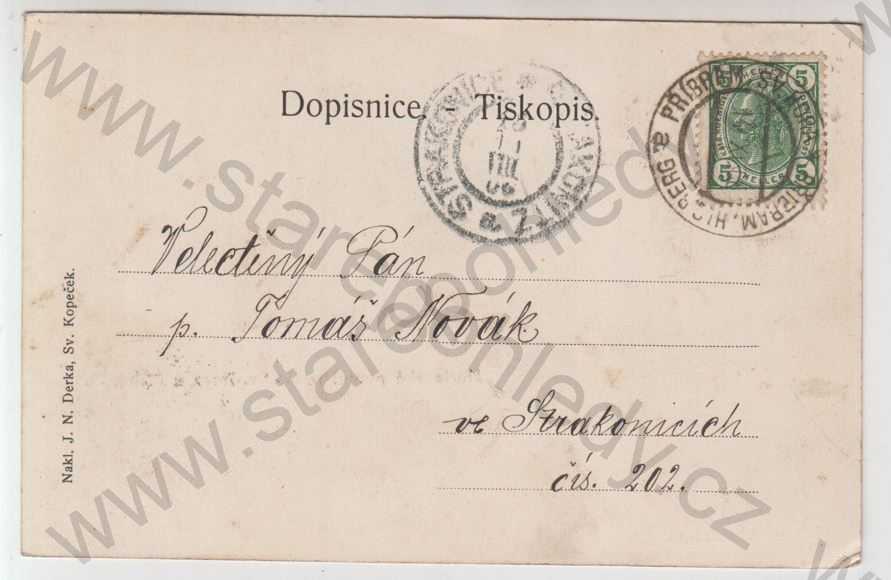 Dopisnice. - Tiskopis.
STRAKONICE * STRAKONITZ
11
VIII
06
PŘÍBRAM, SV. HORA
PŘIBRAM, HLG. BERG
5 5
5 HELLER 5
Velectěný Pán
p. Tomáš Novák
ve Strakonicích
čís. 202.
Nakl. J. N. Derka, Sv. Kopeček.
www.starepohledy.cz
www.starepohledy.cz